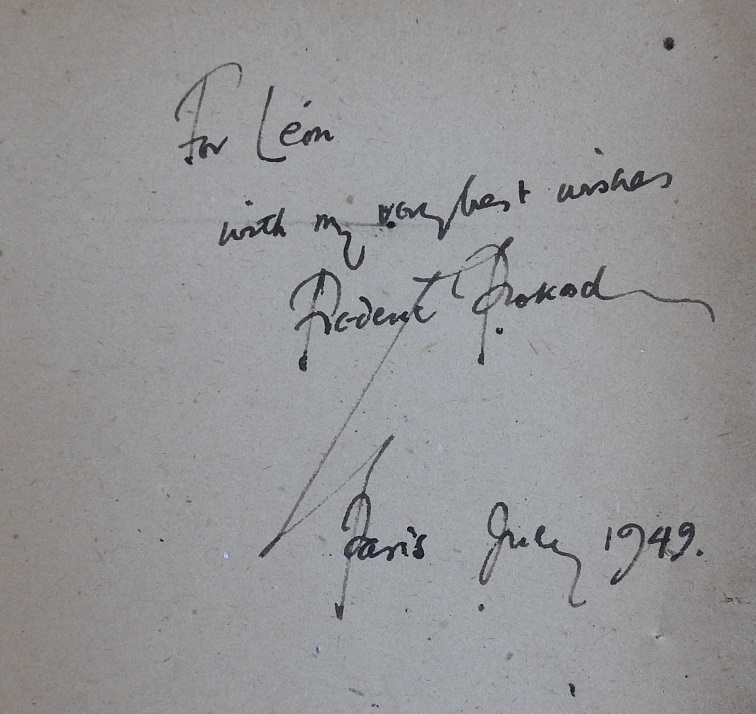 For Léon
with my very best wishes
Frederic Prokosch
Paris July 1949.